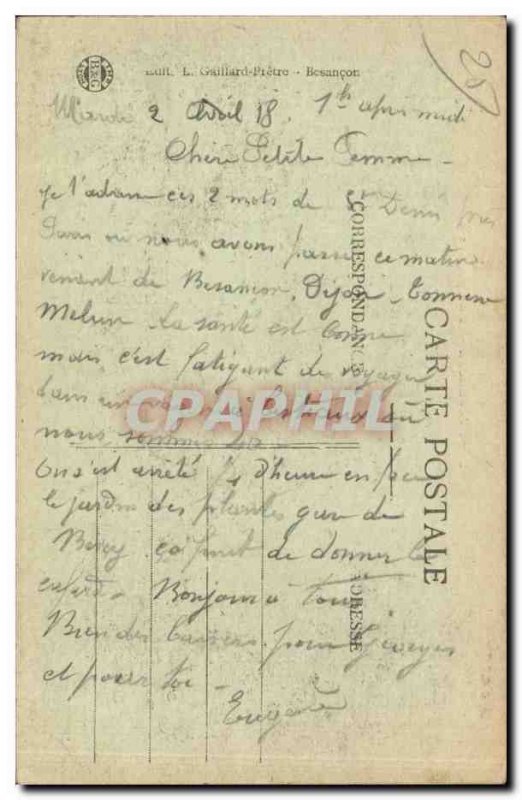 Edit. L. Gaillard-Prêtre - Besançon
B&G
25
Mardi 2 Avril 18. 1h après midi
Chère Petite Femme -
Je t'adresse ces 2 mots de St Denis près
Paris où nous avons passé ce matin
venant de Besançon, Dijon - Tonnerre
Melun. La santé est bonne
mais c'est fatigant de voyager
dans un où
nous sommes 40 -
On s'est arrêté ¼ d'heure en face
le jardin des plantes gare de
Bercy ça finit de donner le
cafard. Bonjour à tous
Bien des baisers pour Georges
et pour toi -
Eugène
CARTE POSTALE
CORRESPONDANCE
ADRESSE
CPAPHIL